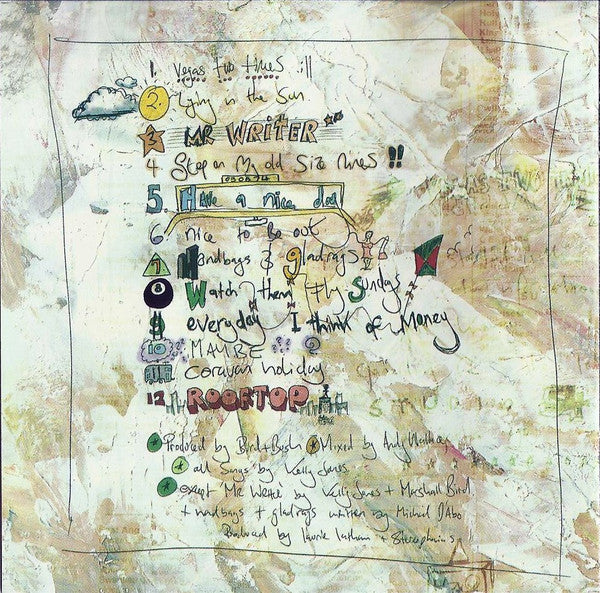 1. Vegas two times
2. Lying in the Sun.
3 MR WRITER
4 Step on My old Size Nines !!
5. Have a nice day
6 nice to be out
7 Handbags & gladrags
8 Watch them Fly Sundays
9 everyday I think of Money
10 MAYBE ?? ?
11 caravan holiday
12 ROOFTOP
Produced by Bird + Bush Mixed by Andy Wallace
all Songs by Kelly Jones
except 'Mr Writer' by Kelly Jones + Marshall Bird
+ handbags + gladrags written by Michael D'Abo
Produced by Laurie Latham + Stereophonics